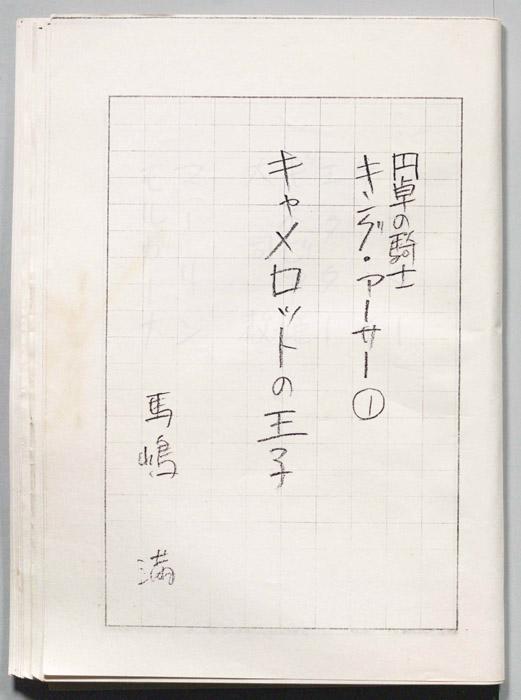 円卓の騎士
キング・アーサー①
キャメロットの王子
馬嶋 満